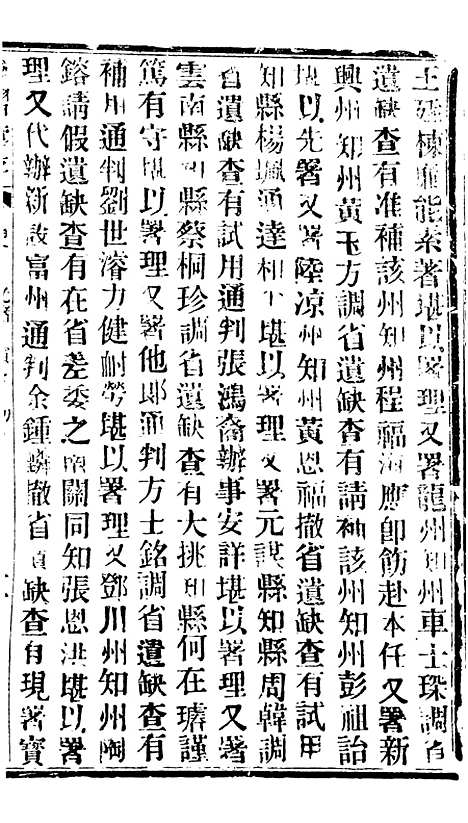 王廷棟廉能素著堪以署理又署龍州知州車士琛調省
遺缺查有准補該州知州程福海應卽飭赴本任又署新
興州知州黃玉方調省遺缺查有請補該州知州彭祖詒
堪以先署又署陸涼州知州黃恩福撤省遺缺查有試用
知縣楊珮通達和平堪以署理又署元謀縣知縣周韓調
省遺缺查有試用通判張鴻裔辦事安詳堪以署理又署
雲南縣知縣蔡桐珍調省遺缺查有大挑知縣何在璿謹
篤有守堪以署理又署他郎通判方士銘調省遺缺查有
補用通判劉世濬力健耐勞堪以署理又鄧川州知州陶
鎔請假遺缺查有在省差委之南關同知張恩洪堪以署
理又代辦新設富州通判余鍾麟撤省遺缺查有現署寶